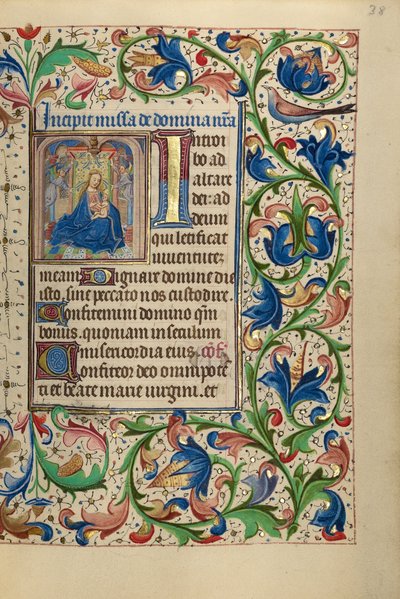 38
Incipit missa de domina nr̄a
Introi
bo ad
altare
dei: ad
deum
qui letificat
iuuentutem
meam Dignare domine die
isto, sine peccato nos custodire
Confitemini domino qm̄
bonus. quoniam in seculum
misericordia eius, Cōf
Confiteor deo omnipotē
ti et beate marie uirgini. et